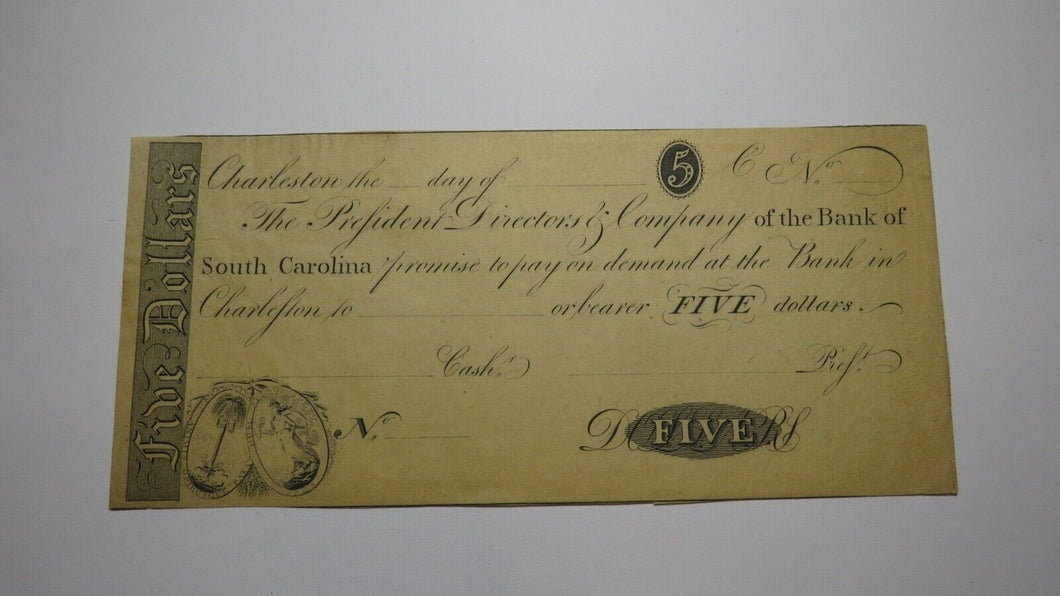 Five Dollars
Charleston the __ day of ________ 5 C No. ____
The President Directors & Company of the Bank of
South Carolina promise to pay on demand at the Bank in
Charleston to ____________ or bearer FIVE dollars.
____________ Cashr. ____________ Prest.
No. ____ DOLLARS FIVE